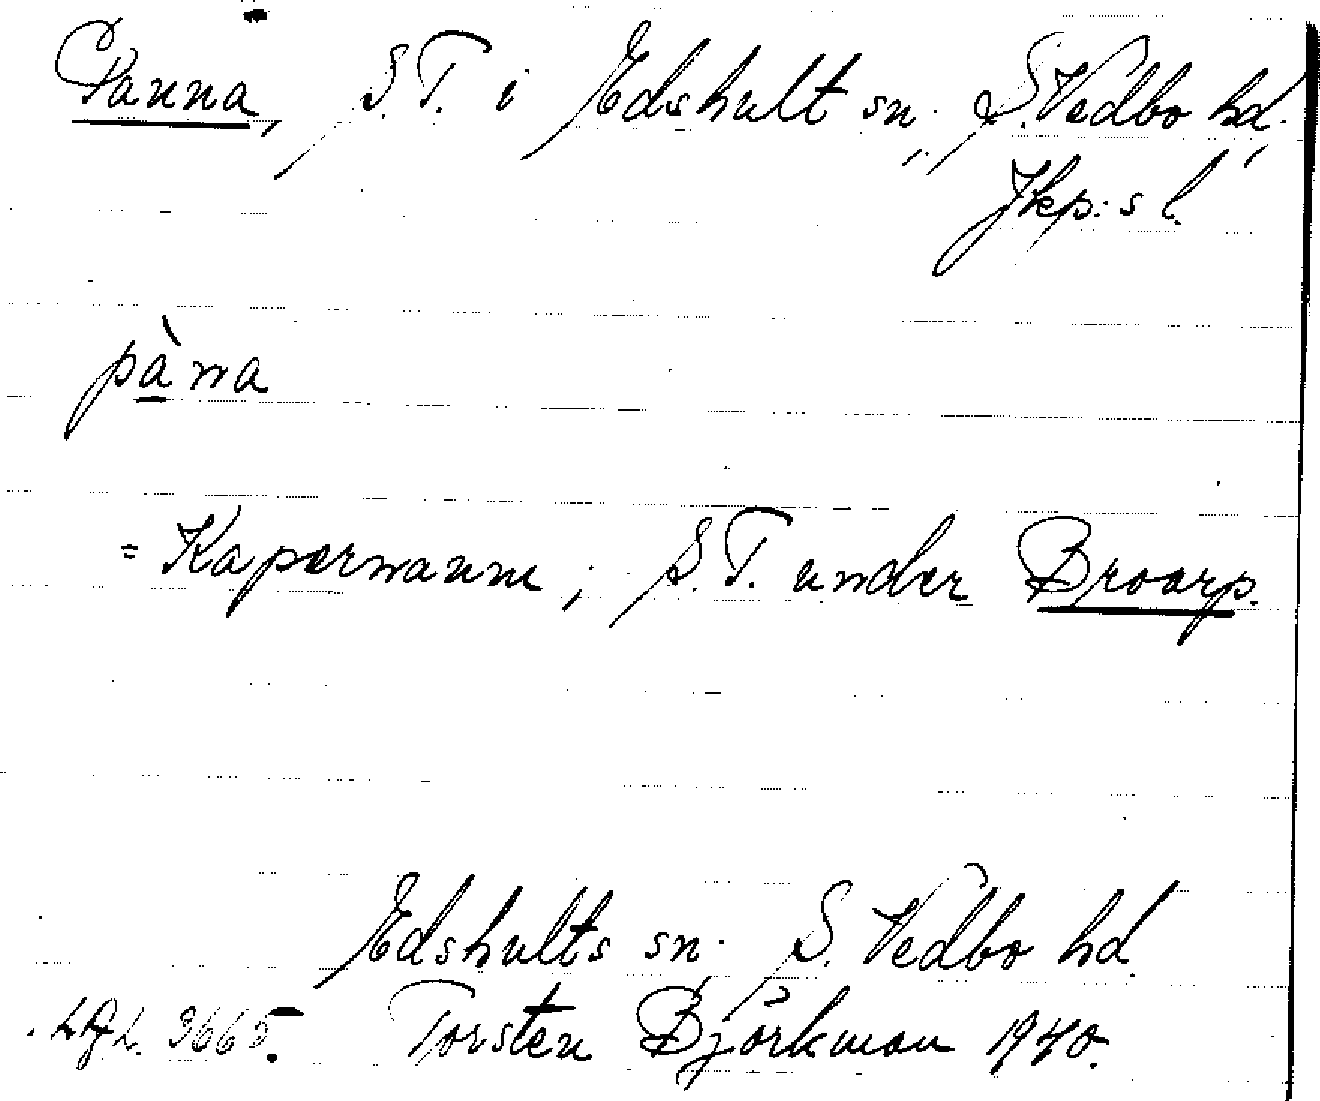 Panna, S.T. i Edshult sn., S. Vedbo hd.,
Jkp:s l.
pàna
= Kapernaum; S.T. under Broarp.
Edshults sn., S. Vedbo hd.
3665. Torsten Björkman 1940.